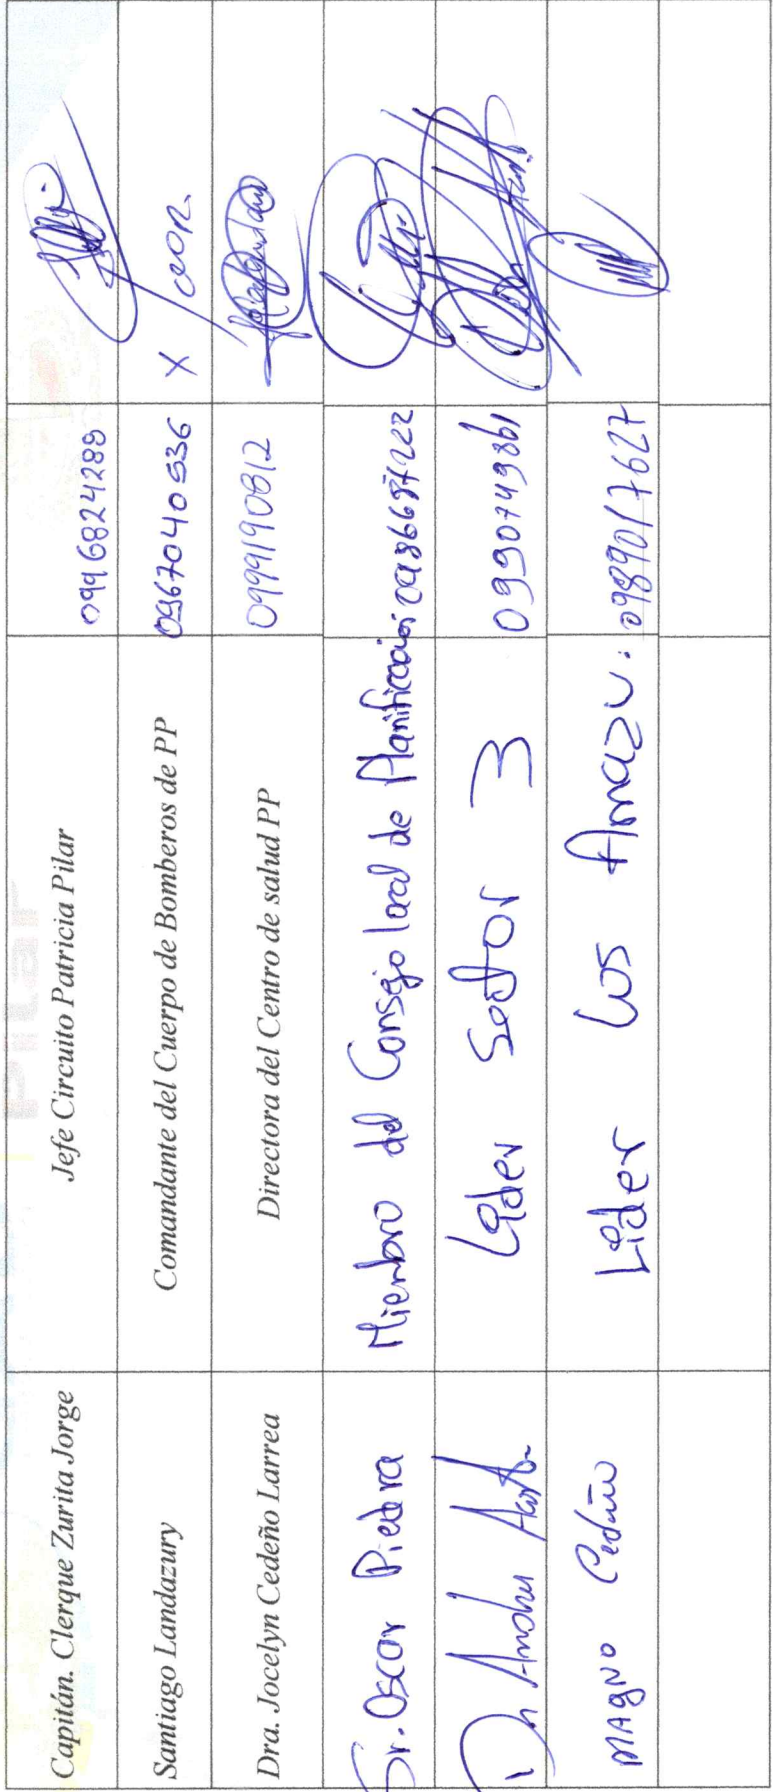 Capitán. Clerque Zurita Jorge Jefe Circuito Patricia Pilar 0996824289
Santiago Landazury Comandante del Cuerpo de Bomberos de PP 0967040536 X
Dra. Jocelyn Cedeño Larrea Directora del Centro de salud PP 0999190812
Sr. Oscar Piedra Miembro del Consejo local de Planificación 0986687222
Líder Sector 3 0990749861
MAgNO Cedeño Líder Los Amazu. 0989017627